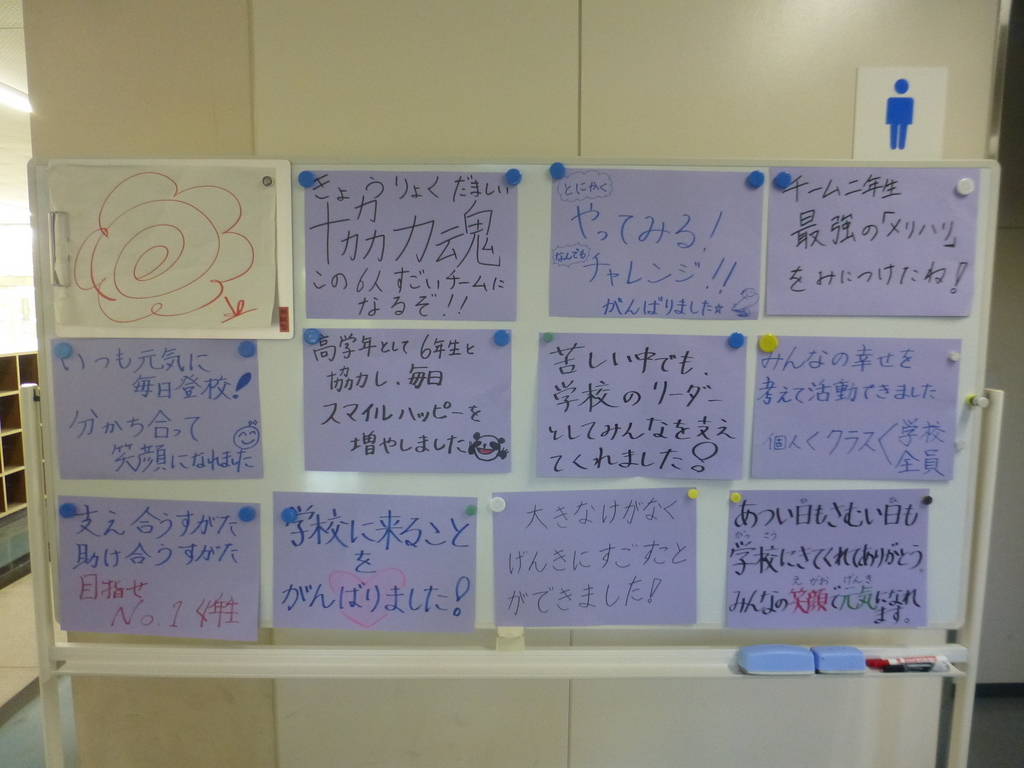 きょうりょくだましい
十カカカ力魂
この6人すごいチームに
なるぞ!!
とにかく
やってみる!
なんでも
チャレンジ!!
がんばりました☆
チーム二年生
最強の「メリハリ」
をみにつけたね!
いつも元気に
毎日登校!
分かち合って
笑顔になれました
高学年として6年生と
協力し、毎日
スマイルハッピーを
増やしました
苦しい中でも、
学校のリーダー
としてみんなを支え
てくれました!
みんなの幸せを
考えて活動できました
個人くクラスく学校
全員
支え合うすがた
助け合うすがた
目指せ
No.1 4年生
学校に来ること
を
がんばりました!
大きなけがなく
げんきにすごたこと
ができました!
あつい日もさむい日も
がっこう
学校にきてくれてありがとう。
えがお げんき
みんなの笑顔で元気になれ
ます。